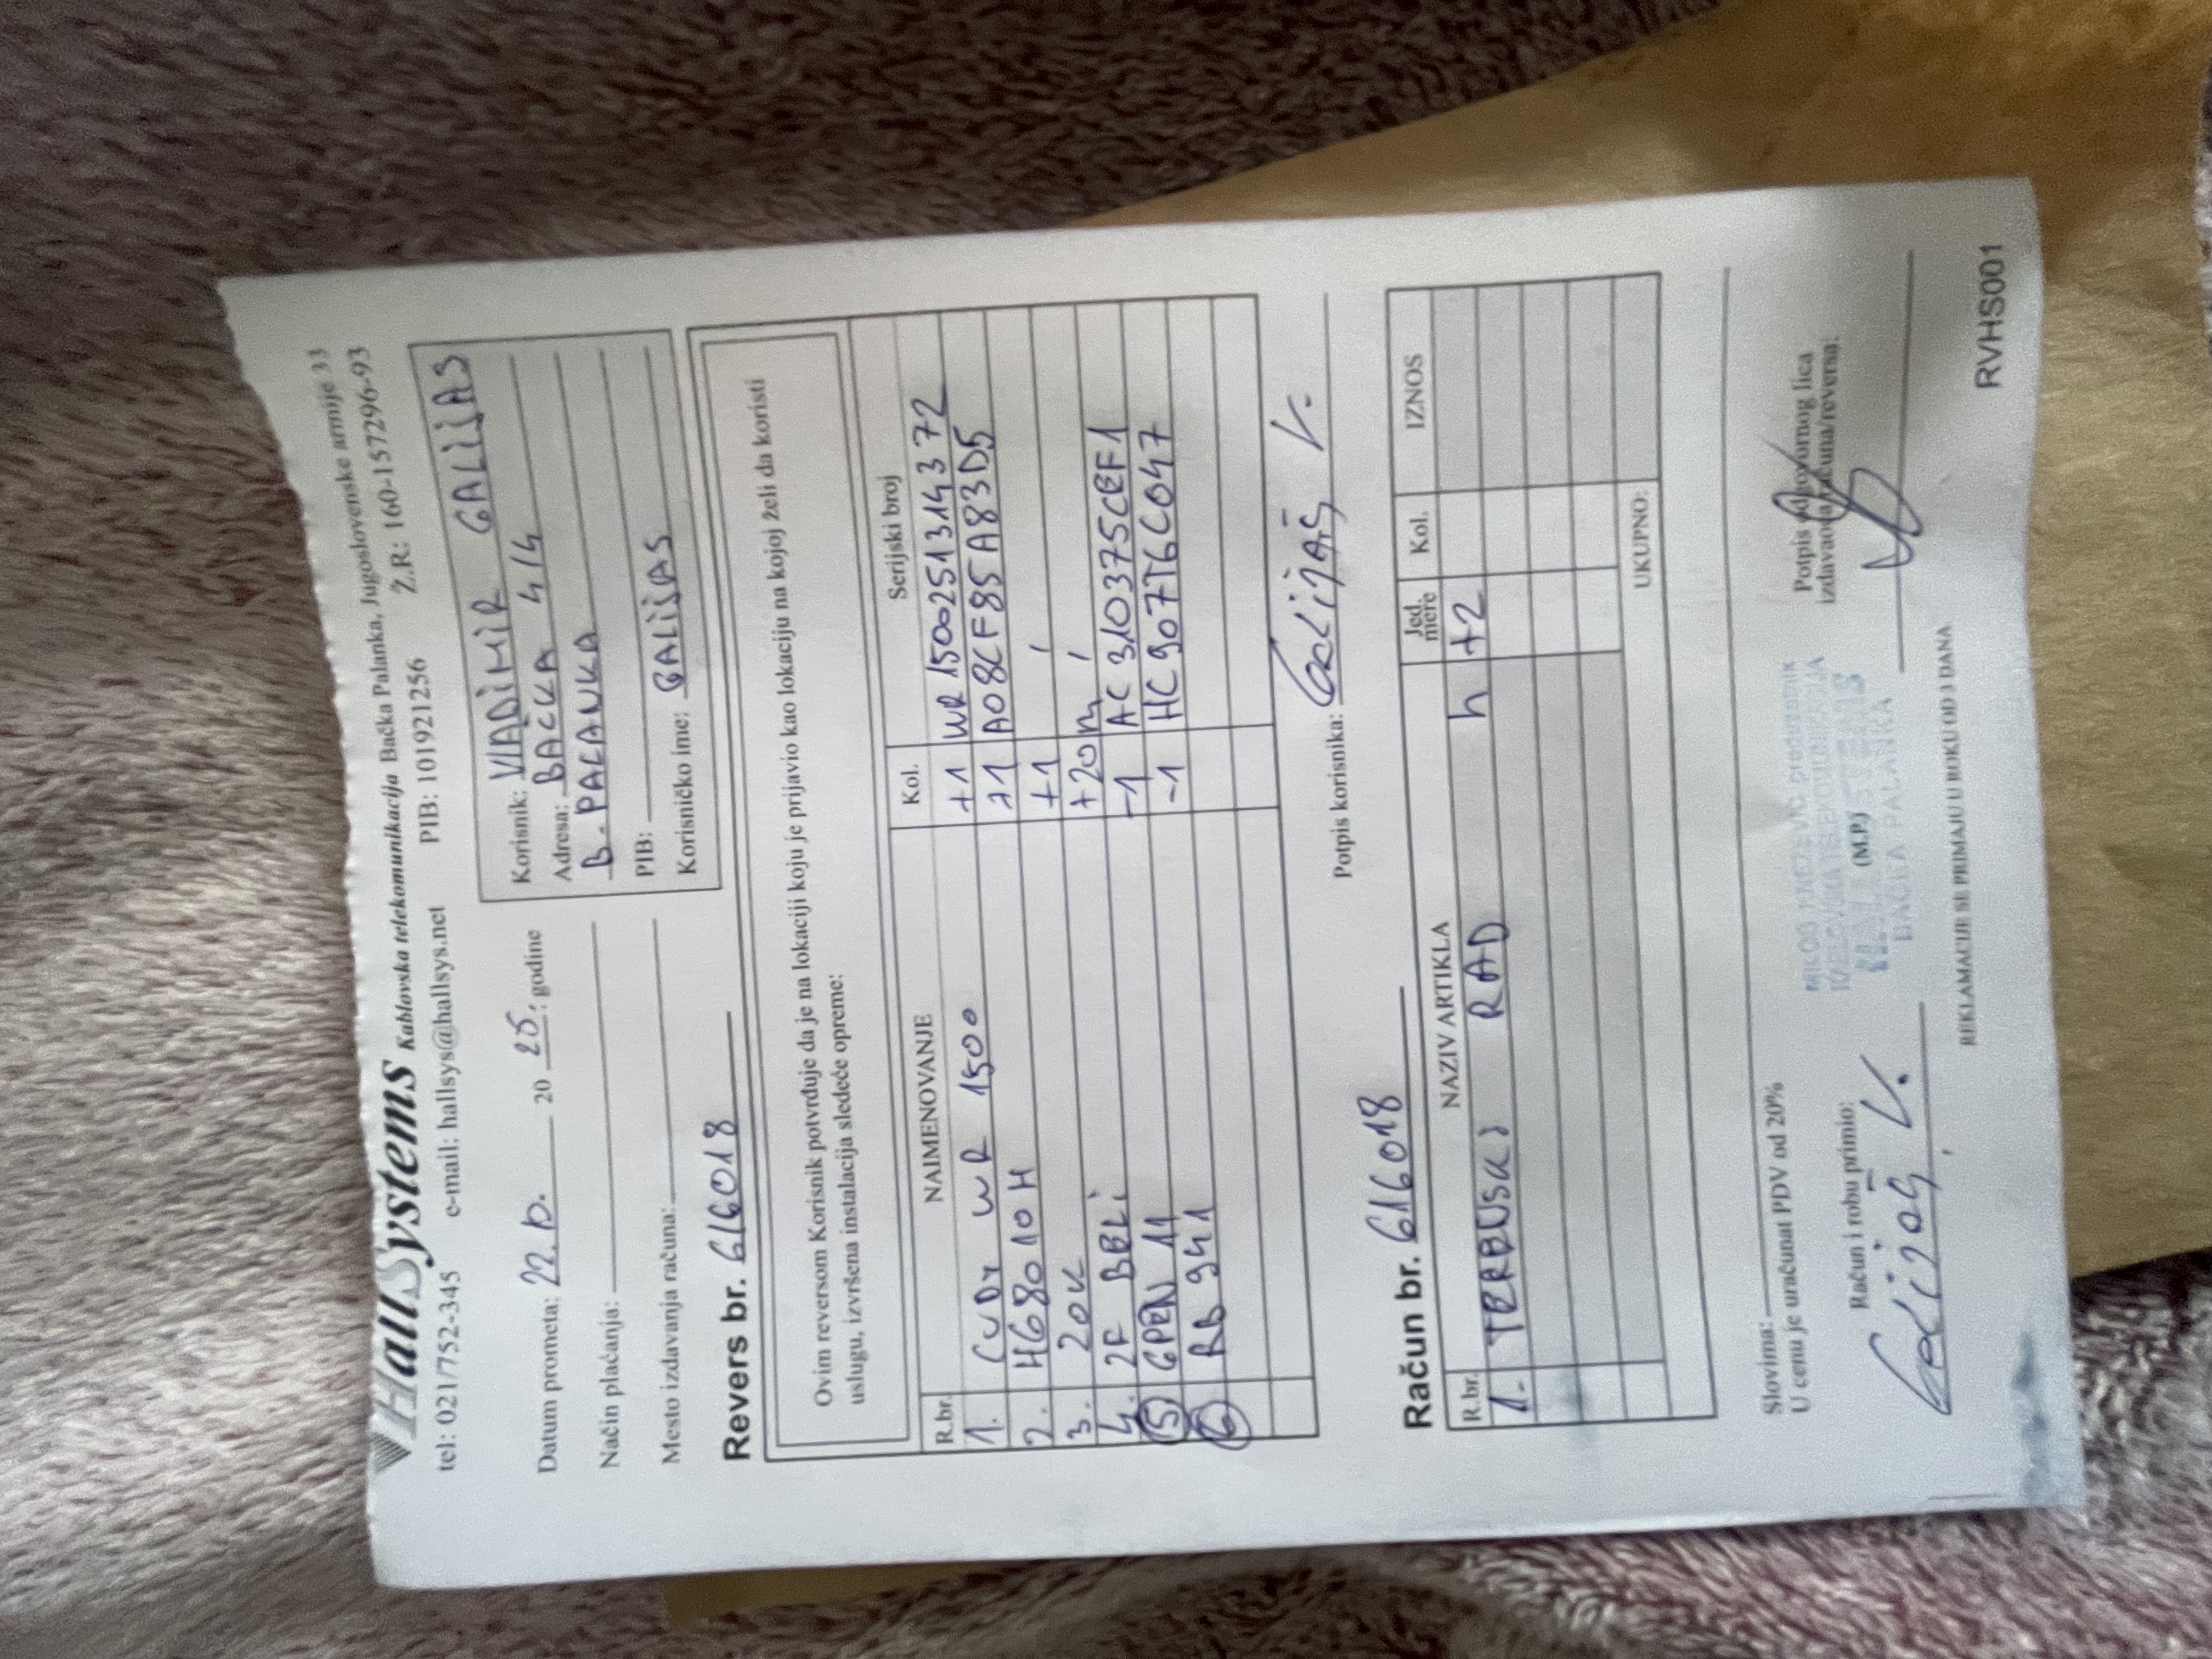 HallSystems Kablovska telekomunikacija Bačka Palanka, Jugoslovenske armije 33
tel: 021/752-345 e-mail: hallsys@hallsys.net PIB: 101921256 Ž.R: 160-157296-93
Datum prometa: 22.10. 20 25. godine
Način plaćanja:
Mesto izdavanja računa:
Korisnik: VLADIMIR GALIJAS
Adresa: BAČKA 4/4
B. PALANKA
PIB:
Korisničko ime: GALIJAS
Revers br. 616018
Ovim reversom Korisnik potvrđuje da je na lokaciji koju je prijavio kao lokaciju na kojoj želi da koristi
uslugu, izvršena instalacija sledeće opreme:
R.br. NAIMENOVANJE Kol. Serijski broj
1. CUDY WR 1500 +1 WR1500251314372
2. HG8010H +1 A08CF85A83D5
3. ZOK +1 /
4. 2F BELI +20m /
5 GPEN 11 -1 AC310375CEF1
6 RB 941 -1 HC907T6C047
Potpis korisnika: Galijaš V.
Račun br. 616018
R.br. NAZIV ARTIKLA Jed. mere Kol. IZNOS
1. RAD h +2
UKUPNO:
Slovima:
U cenu je uračunat PDV od 20%
Račun i robu primio:
Galijaš V.
MILOŠ KNEŽEVIĆ preduzetnik
KABLOVSKA TELEKOMUNIKACIJA
(M.P.)
HALL SYSTEMS
BAČKA PALANKA
Potpis odgovornog lica
izdavaoca računa/reversa:
REKLAMACIJE SE PRIMAJU U ROKU OD 3 DANA
RVHS001